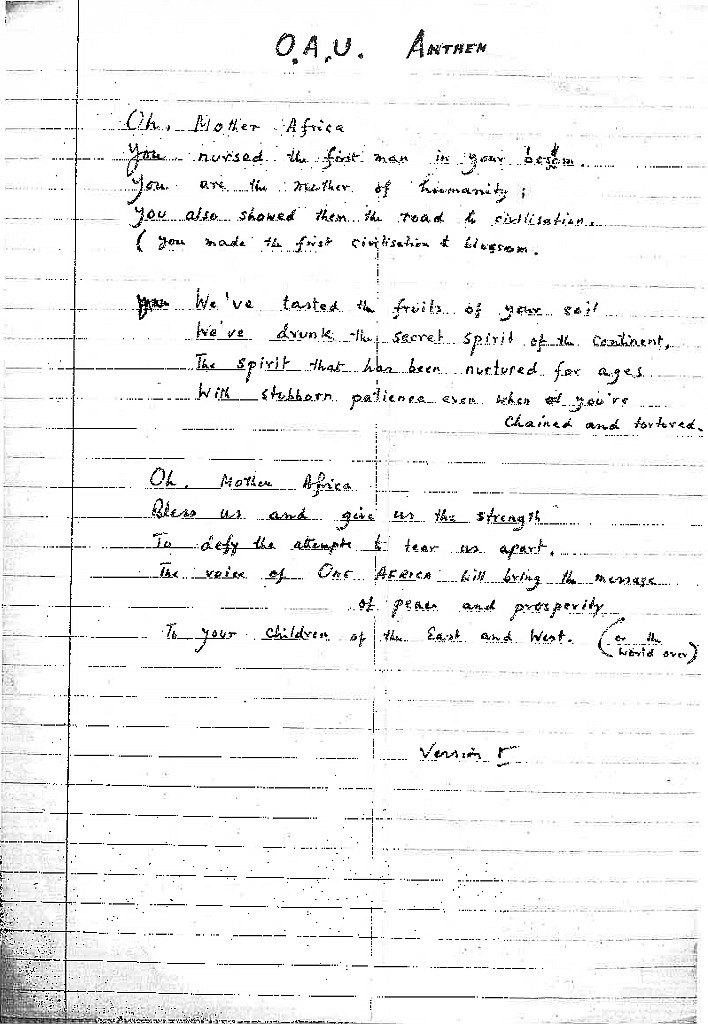 O.A.U. ANTHEM
Oh. Mother Africa
You nursed the first man in your bosom.
You are the mother of humanity;
You also showed them the road to civilisation.
( you made the first civilisation to blossom.
We've tasted the fruits of your soil
We've drunk the secret spirit of the continent,
The spirit that has been nurtured for ages
With stubborn patience even when you're
chained and tortured.
Oh. Mother Africa
Bless us and give us the strength
To defy the attempts to tear us apart.
The voice of ONE AFRICA will bring the message
of peace and prosperity
To your children of the East and West. (or the
world over)
Version